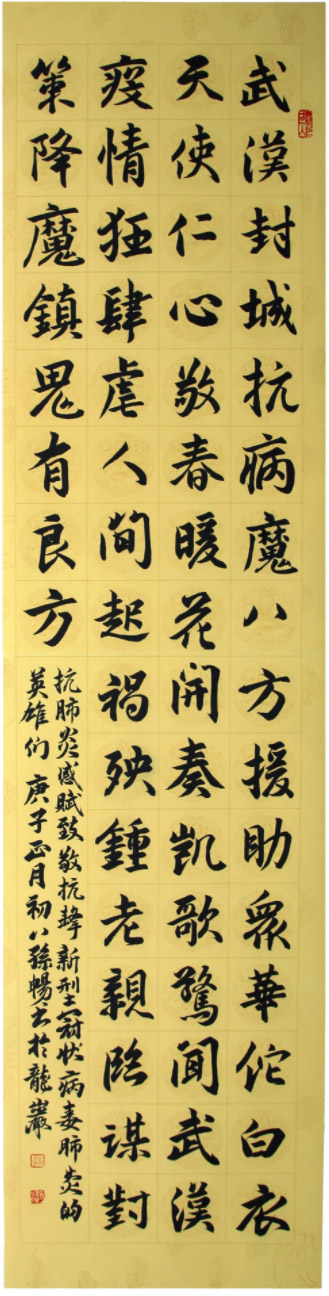 武漢封城抗病魔八方援助衆華佗白衣
天使仁心敬春暖花開奏凱歌驚聞武漢
疫情狂肆虐人間起禍殃鍾老親臨謀對
策降魔鎮鬼有良方
抗肺炎感賦致敬抗擊新型冠狀病毒肺炎的
英雄们庚子正月初八孫暢書於龍巖